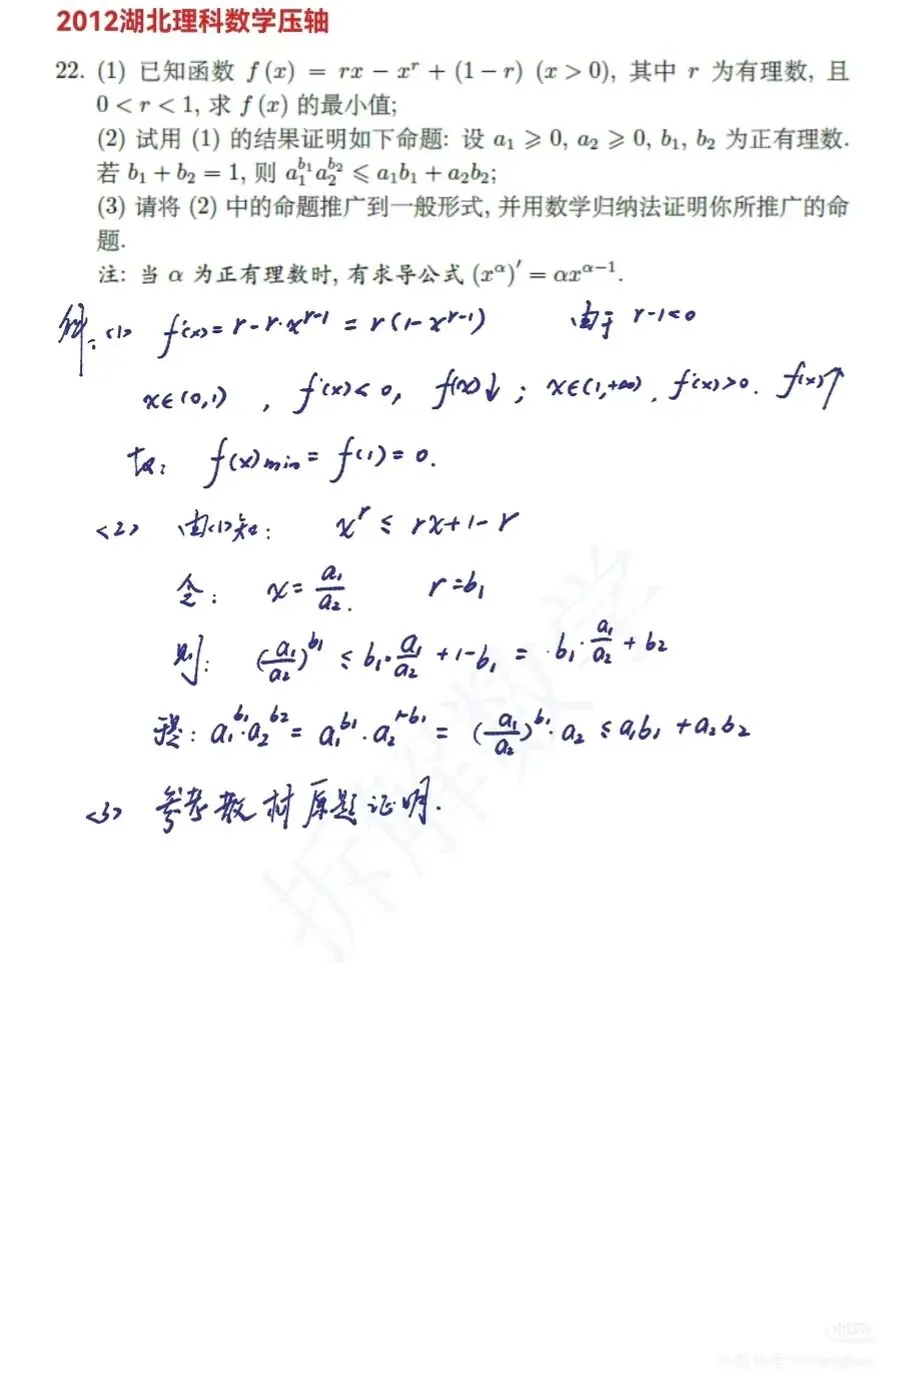 2012湖北理科数学压轴
22. (1) 已知函数 f (x) = rx − x^r + (1 − r) (x > 0), 其中 r 为有理数, 且
0 < r < 1, 求 f (x) 的最小值;
(2) 试用 (1) 的结果证明如下命题: 设 a₁ ⩾ 0, a₂ ⩾ 0, b₁, b₂ 为正有理数.
若 b₁ + b₂ = 1, 则 a₁^b₁ a₂^b₂ ⩽ a₁b₁ + a₂b₂;
(3) 请将 (2) 中的命题推广到一般形式, 并用数学归纳法证明你所推广的命
题.
注: 当 α 为正有理数时, 有求导公式 (x^α)′ = αx^(α−1).
解: <1> f'(x) = r − r·x^(r−1) = r(1 − x^(r−1)) 由于 r−1<0
x∈(0,1) , f'(x)<0, f(x)↓ ; x∈(1,+∞), f'(x)>0. f(x)↑
故: f(x)min = f(1) = 0.
<2> 由<1>知: x^r ≤ rx+1−r
令: x = a₁/a₂. r = b₁
则: (a₁/a₂)^b₁ ≤ b₁·a₁/a₂ + 1−b₁ = b₁·a₁/a₂ + b₂
a₁^b₁·a₂^b₂ = a₁^b₁·a₂^(1−b₁) = (a₁/a₂)^b₁·a₂ ≤ a₁b₁ + a₂b₂
<3> 参考教材原题证明.
拆解数学
小红书